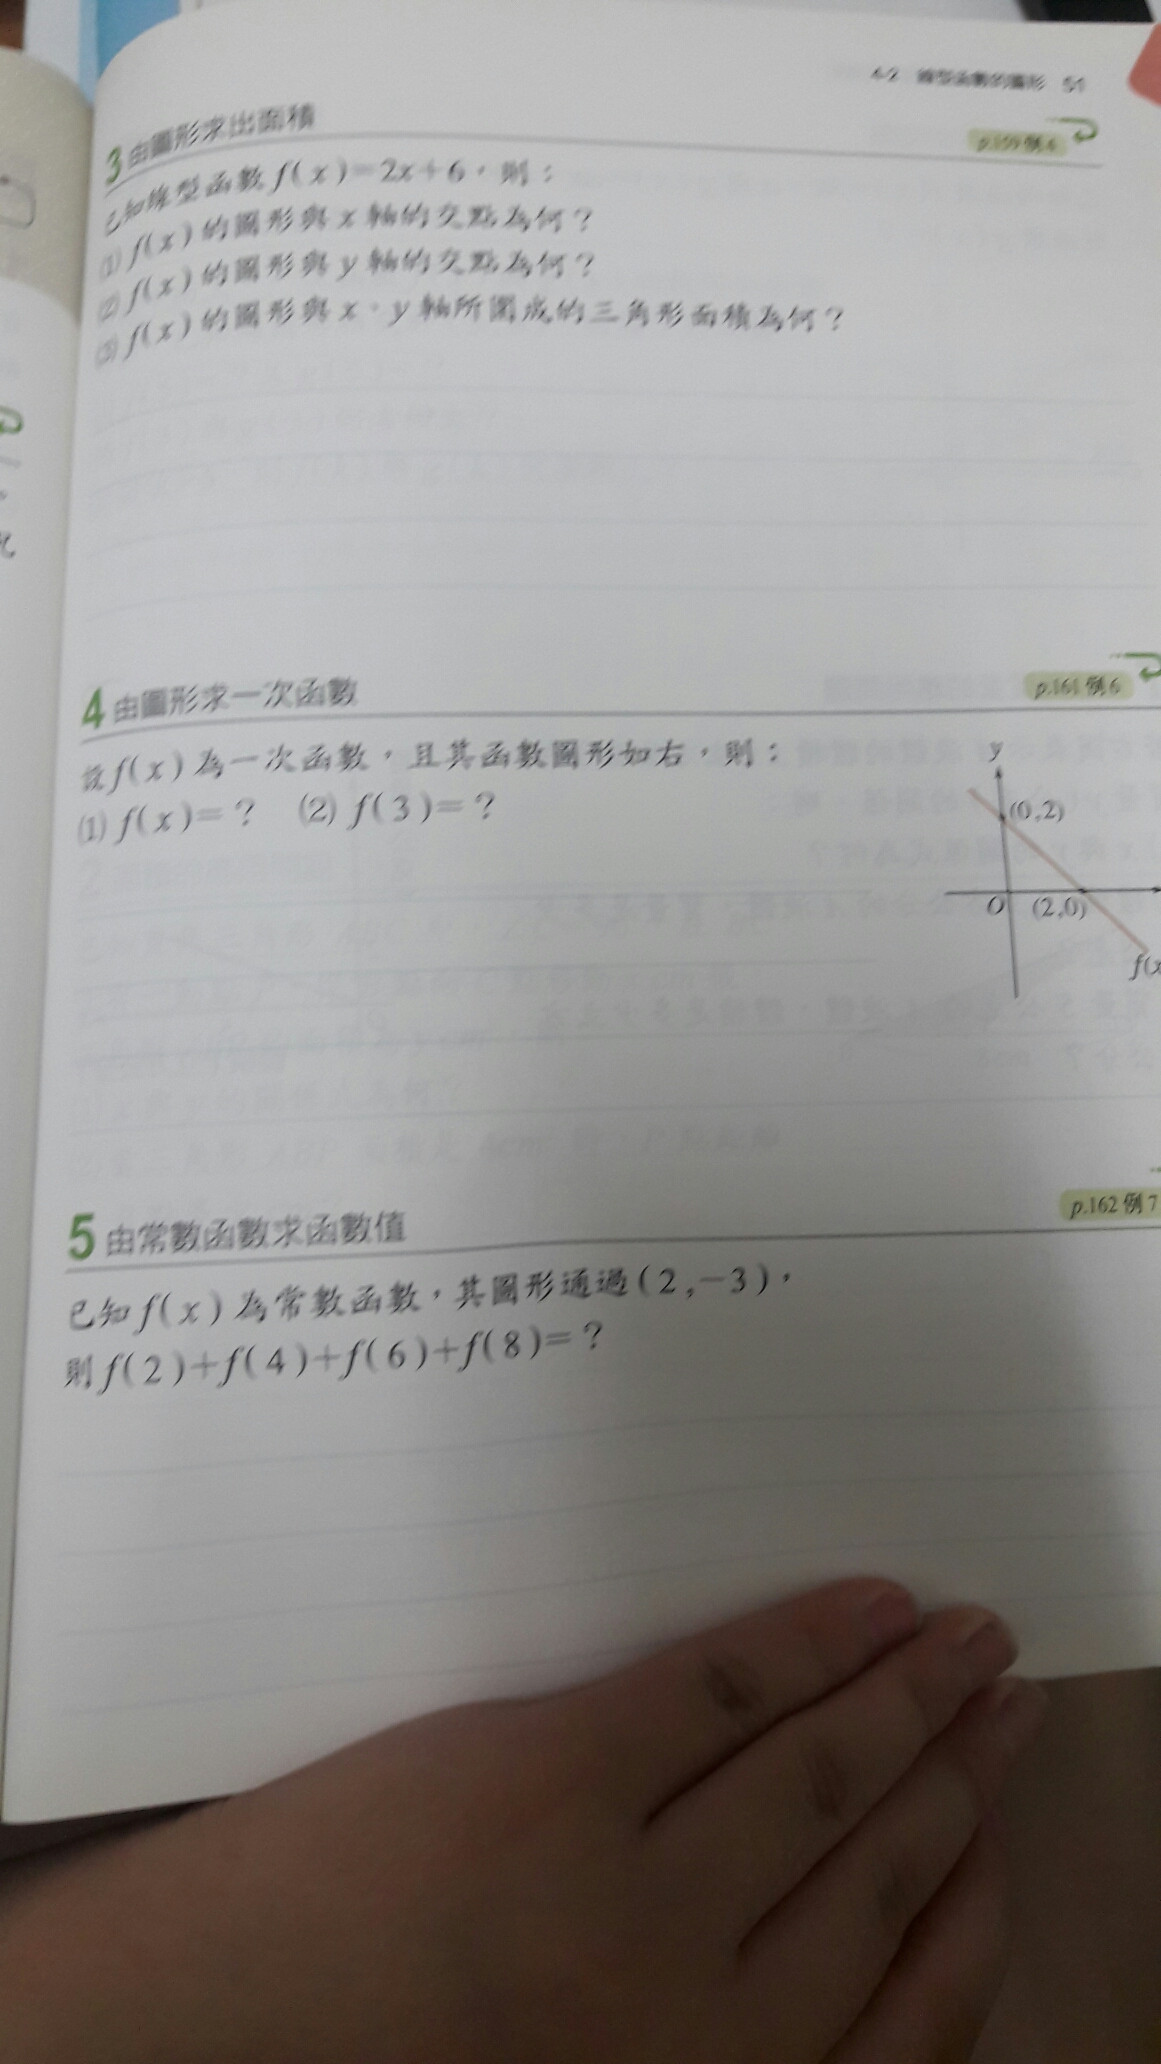 4-2 線型函數的圖形 51
3 由圖形求出面積
p.159 例4
已知線型函數 f(x)=2x+6，則：
⑴ f(x) 的圖形與 x 軸的交點為何？
⑵ f(x) 的圖形與 y 軸的交點為何？
⑶ f(x) 的圖形與 x、y 軸所圍成的三角形面積為何？
4 由圖形求一次函數
p.161 例6
設 f(x) 為一次函數，且其函數圖形如右，則：
⑴ f(x)=？ ⑵ f(3)=？
y
(0,2)
O (2,0)
f(x
5 由常數函數求函數值
p.162 例7
已知 f(x) 為常數函數，其圖形通過(2,−3)，
則 f(2)+f(4)+f(6)+f(8)=？